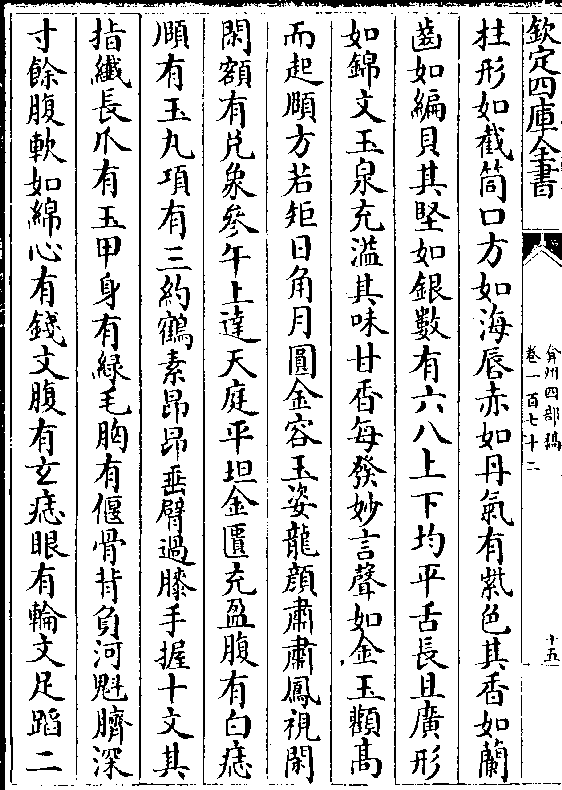 欽定四庫全書
弇州四部稿
卷一百七十二
十五
柱形如截筒口方如海唇赤如丹氣有紫色其香如蘭
齒如編貝其堅如銀數有六八上下均平舌長且廣形
如錦文玉泉充溢其味甘香每發妙言聲如金玉顴高
而起頤方若矩日角月圓金容玉姿龍顔肅肅鳳視閑
閑額有兌象參午上達天庭平坦金匱充盈腹有白痣
頤有玉丸項有三約鶴素昂昂垂臂過膝手握十文其
指纖長爪有玉甲身有緑毛胸有偃骨背負河魁臍深
寸餘腹軟如綿心有錢文腹有玄痣眼有輪文足蹈二